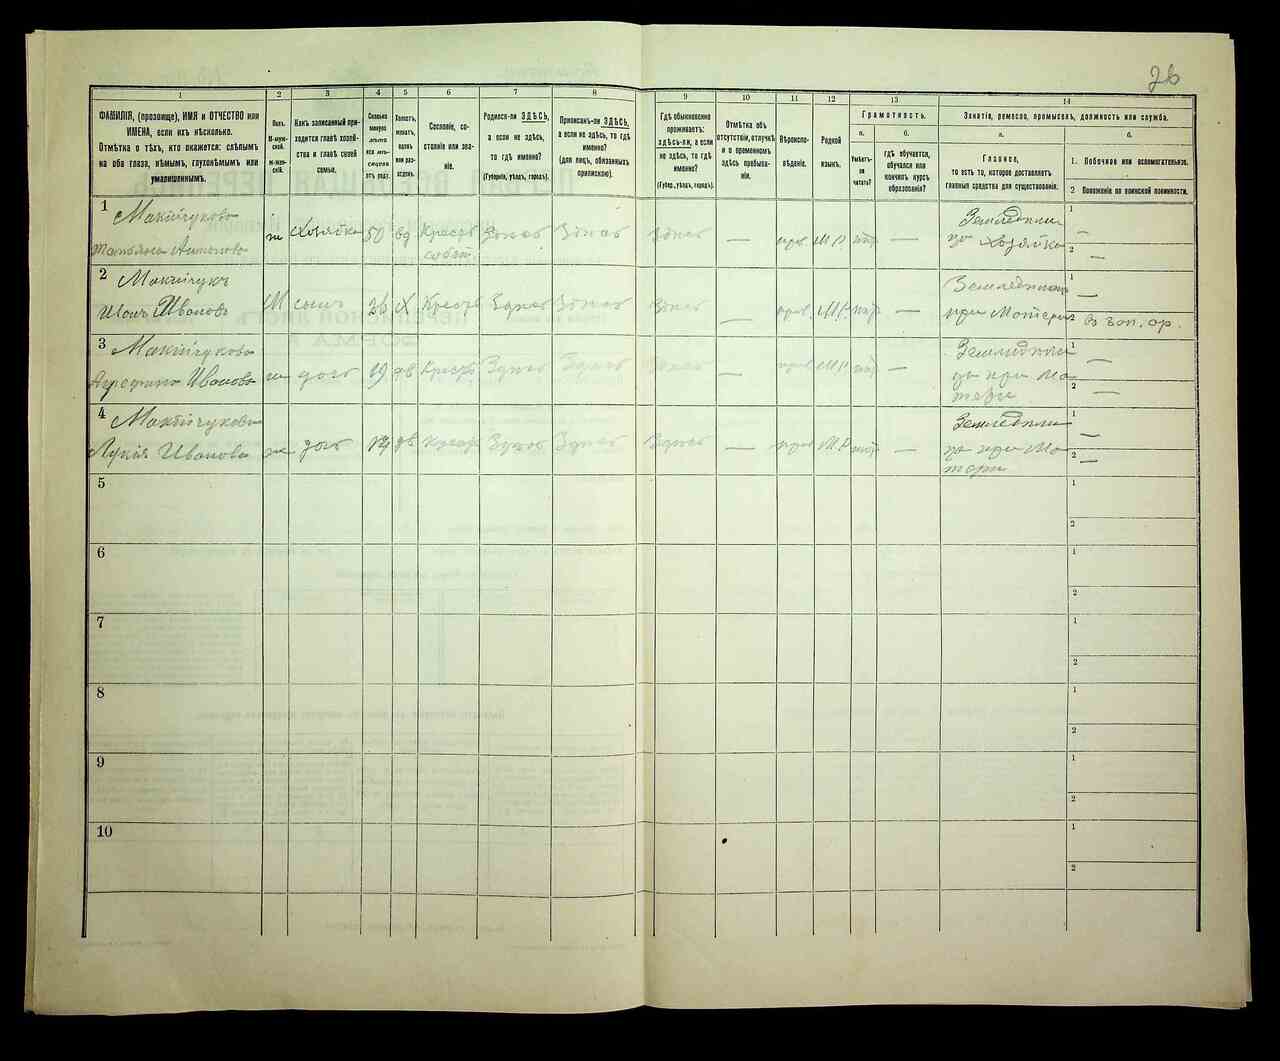 26
1 2 3 4 5 6 7 8 9 10 11 12 13 14
ФАМИЛІЯ, (прозвище), ИМЯ и ОТЧЕСТВО или
ИМЕНА, если ихъ нѣсколько.
Отмѣтка о тѣхъ, кто окажется: слѣпымъ
на оба глаза, нѣмымъ, глухонѣмымъ или
умалишеннымъ.
Полъ.
М-муж-
ской.
Ж-жен-
скій.
Какъ записанный при-
ходится главѣ хозяй-
ства и главѣ своей
семьи.
Сколько
минуло
лѣтъ
или мѣ-
сяцевъ
отъ роду.
Холостъ,
женатъ,
вдовъ
или раз-
веденъ.
Сословіе, со-
стояніе или зва-
ніе.
Родился-ли ЗДѢСЬ,
а если не здѣсь,
то гдѣ именно?
(Губернія, уѣздъ, городъ).
Приписанъ-ли ЗДѢСЬ,
а если не здѣсь, то гдѣ
именно?
(для лицъ, обязанныхъ
припискою).
Гдѣ обыкновенно
проживаетъ:
здѣсь-ли, а если
не здѣсь, то гдѣ
именно?
(Губер., уѣздъ, городъ).
Отмѣтка объ
отсутствіи, отлучкѣ
и о временномъ
здѣсь пребыва-
ніи.
Вѣроиспо-
вѣданіе.
Родной
языкъ.
Грамотность.
а.
Умѣетъ-
ли
читать?
б.
гдѣ обучается,
обучался или
кончилъ курсъ
образованія?
Занятіе, ремесло, промыселъ, должность или служба.
а.
Главное,
то есть то, которое доставляетъ
главныя средства для существованія.
б.
1. Побочное или вспомогательное.
2 Положеніе по воинской повинности.
1 Макійчукова
ж хозяйка 50 вд Крестъ Здѣсь Здѣсь Здѣсь — прав. М.Р. —
1 —
2 —
2 Макійчукъ
Иванъ Ивановъ М сынъ 26 х Крест Здѣсь Здѣсь Здѣсь — прав. М.Р. —
при Матери
1 —
2 в зап. ар.
3 Макійчукова
Агрефина Иванова ж дочь 19 дв Крест Здѣсь Здѣсь Здѣсь — прав М.Р. —
ца при Ма
тери
1 —
2 —
4 Макійчукова
Лукія Иванова ж дочь дв Крест Здѣсь Здѣсь Здѣсь — прав М.Р —
ца при Ма
тери
1 —
2 —
5
1
2
6
1
2
7
1
2
8
1
2
9
1
2
10
1
2